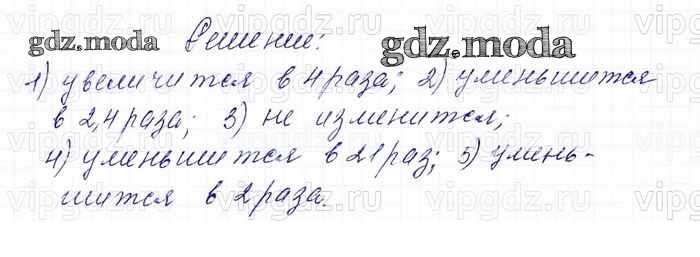 vipgdz.ru vipgdz.ru vipgdz.ru vipgdz.ru vipgdz.ru
gdz.moda Решение: gdz.moda
1) увеличится в 4 раза; 2) уменьшится
в 2,4 раза; 3) не изменится;
4) уменьшится в 21 раз; 5) умень-
шится в 2 раза.